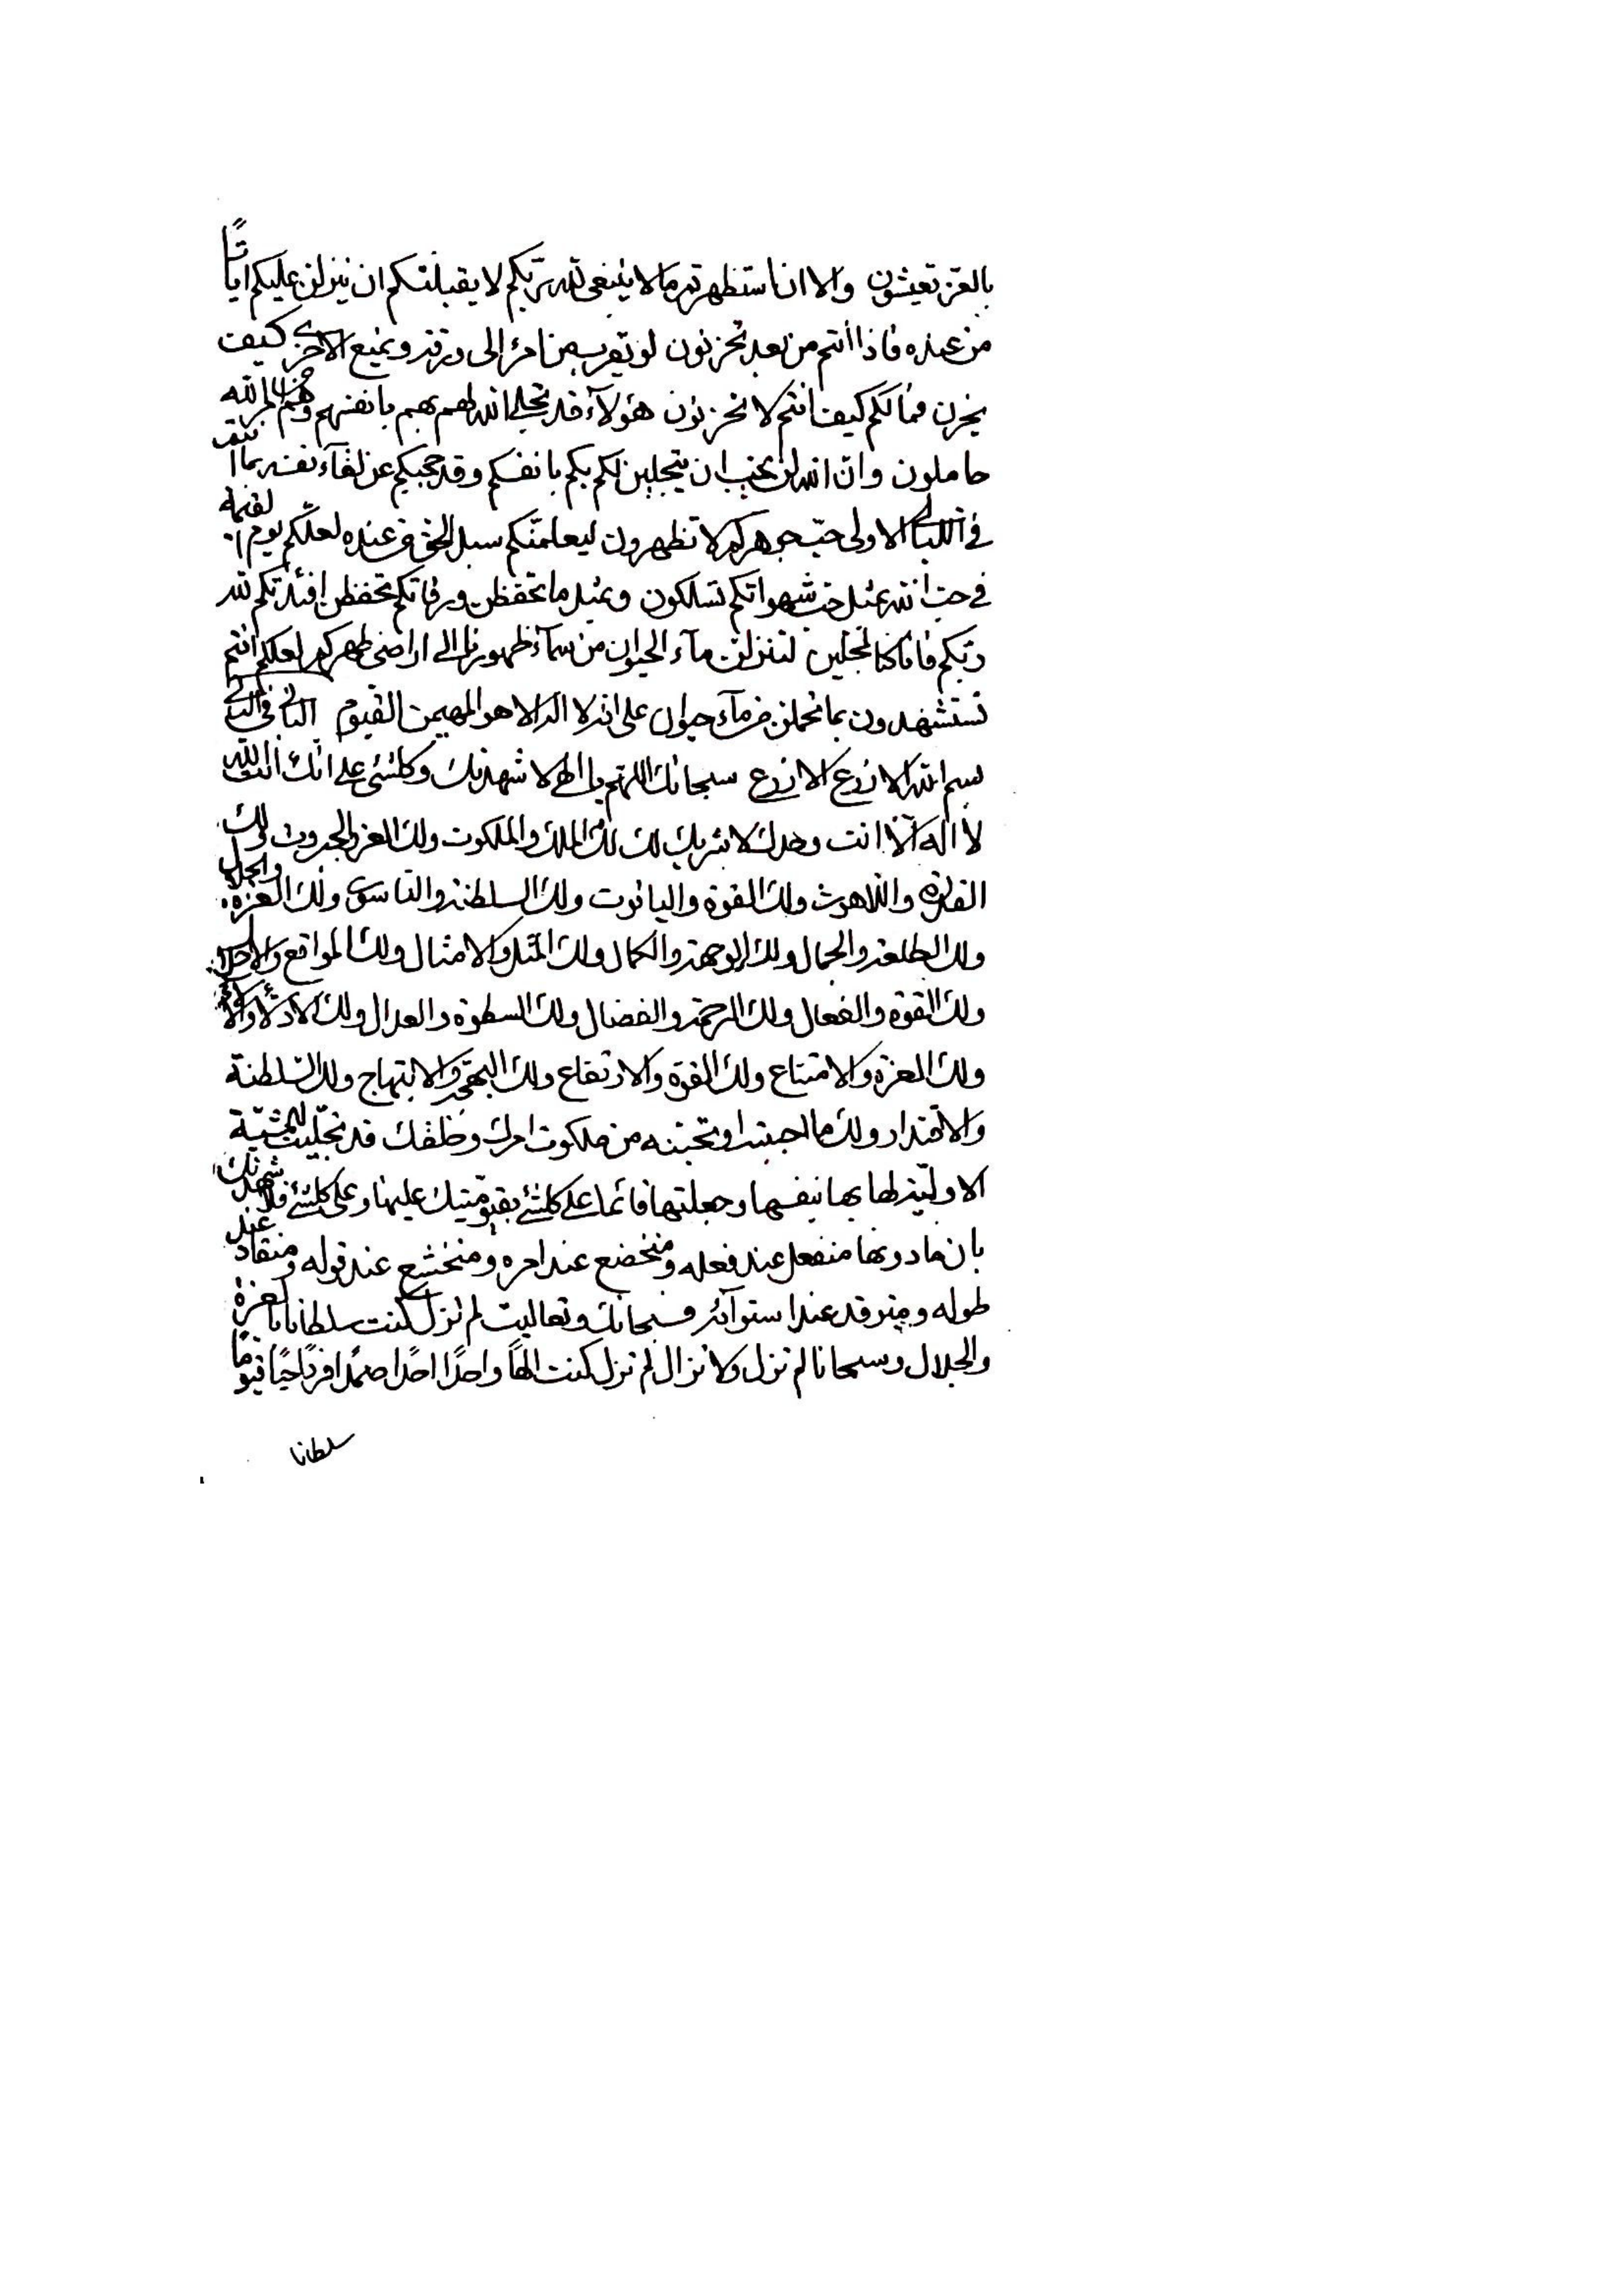 بالعز تعيشون والا ان استظهرتم ما لا ينبغي لله ربكم لا يقبلنكم ان ينزلن عليكم اياتًا
من عنده فاذا أنتم من بعد تحزنون لو تقرب من امرء الى رزقه ويمنع الاخرى كيف
يحزن فما لكم كيف انتم لا تحزنون هؤلآء قد تجلى الله لهم بهم بانفسهم وهم لامر الله
حاملون وان الله لن يحب ان يتجلين لكم بكم بانفسكم وقد حجبكم عن لقآء نفسه بما
في الاولى حب جوهركم لا تظهرون ليعلمنكم سبل الحق من عنده لعلكم يوم القيمة
في حب الله بمثل حب شهواتكم تسلكون وبمثل ما تحفظن ورقاتكم تحفظن افئدتكم لله
ربكم فانا كنا لمنزلين لتنزلن مآء الحيوان من سمآء ظهورنا الى اراضي ظهركم لعلكم انتم
تستشهدون بما نحملن من مآء حيوان على انه لا اله الا هو المهيمن القيوم الثاني في الثاني
بسم الله الازرع الازرع سبحانك اللهم يا الهي لاشهدنك وكلشئ على انك انت الله
لا اله الا انت وحدك لا شريك لك لك الملك والملكوت ولك العز والجبروت ولك
القدرة واللاهوت ولك القوة والياقوت ولك السلطنة والناسوت ولك العزة والجلال
ولك الطلعة والجمال ولك الوجهة والكمال ولك المثل والامثال ولك المواقع والاجلال
ولك القوة والفعال ولك الرحمة والفضال ولك السطوة والعدال ولك
ولك العزة والامتناع ولك القوة والارتفاع ولك البهجة والابتهاج ولك السلطنة
والاقتدار ولك ما احببته او تحبنه من ملكوت امرك وخلقك قد تجليت للمشية
الاولية لها بها بنفسها وجعلتها قائما على كلشئ بقيوميتك عليها وعلى كلشئ فلاشهدنك
بان ما دونها منفعل عند فعله ومنخضع عند امره ومنخشع عند قوله ومنقاد عند
طوله ومنرقد عند استوآئه فسبحانك وتعاليت لم تزل كنت سلطانا بالعزة
والجلال وسبحانا لم تزل ولا تزال لم تزل كنت الهًا واحدًا احدًا صمدًا فردًا حيًا قيومًا
سلطانا